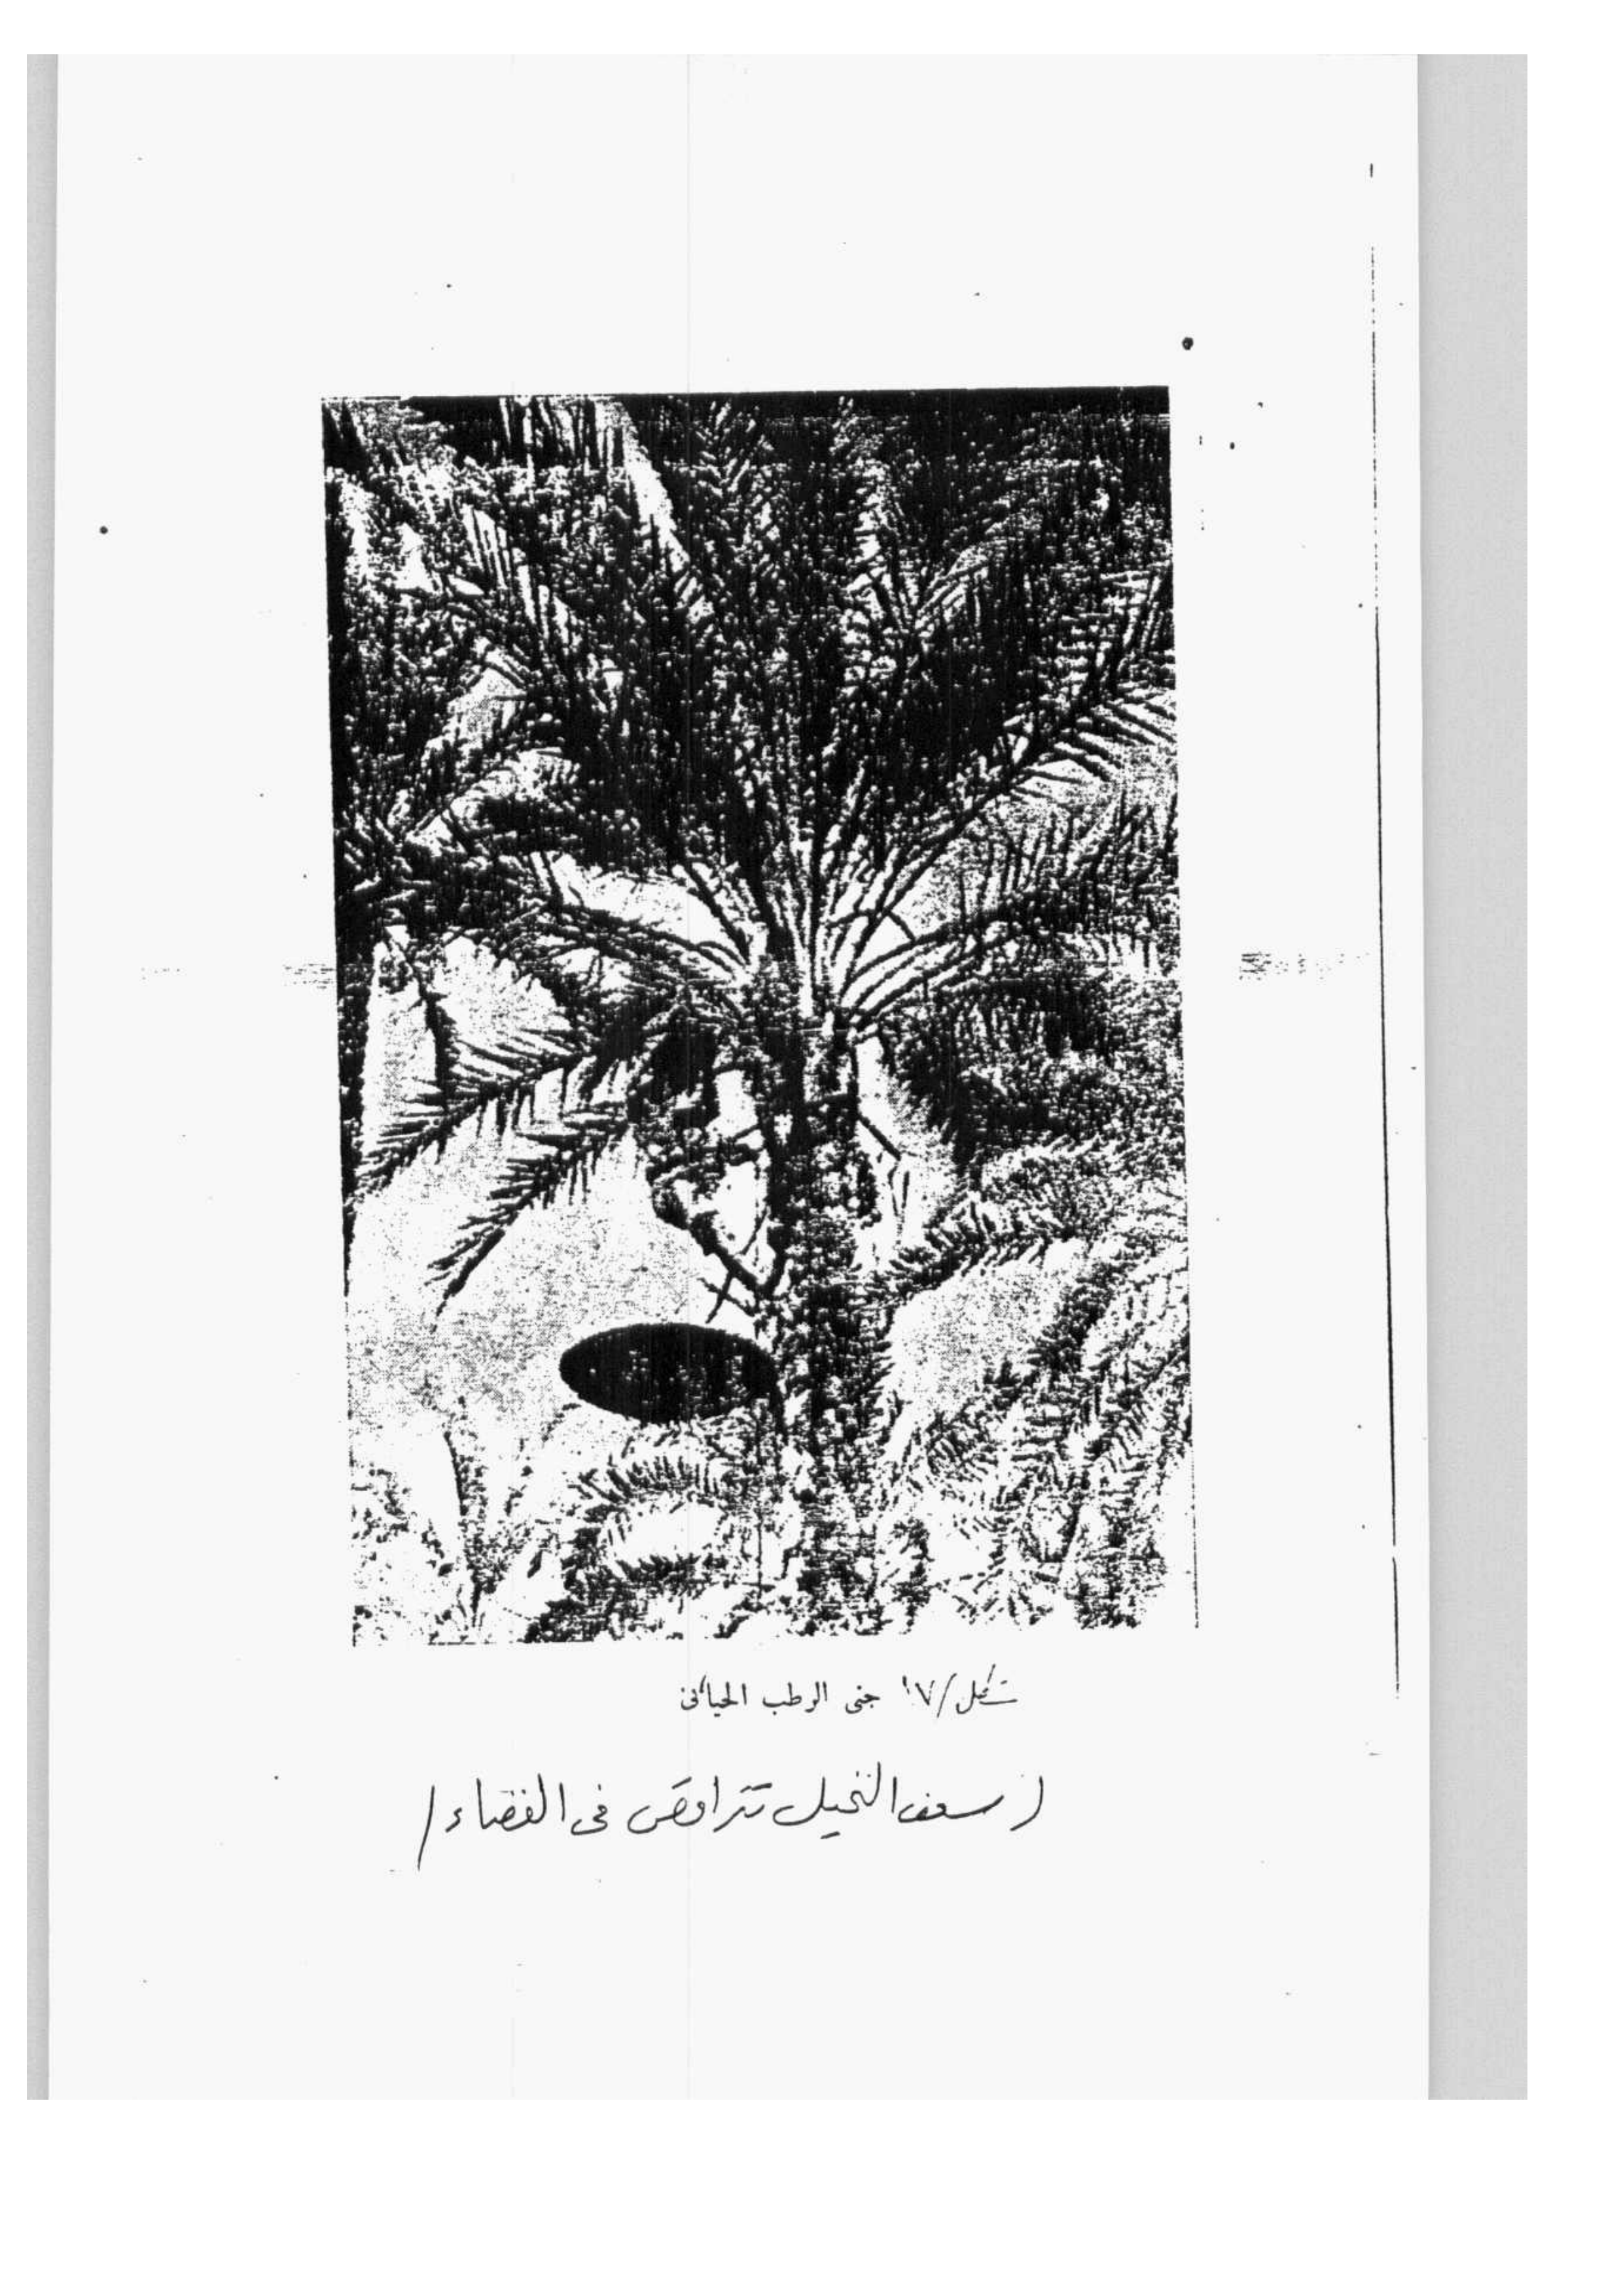 شكل/١٧ جنى الرطب الحيانى
(سعف النخيل تتراقص فى الفضاء)